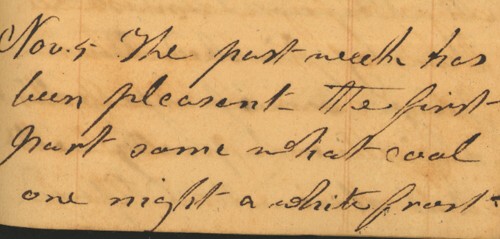 Nov. 5 The past week has
been pleasent - the first
part some what cool
one night a white frost -